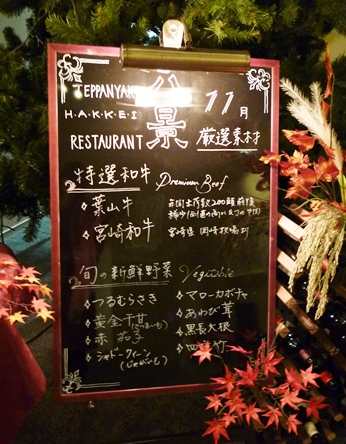 TEPPANYAKI
HAKKEI
RESTAURANT
八景
11月
厳選素材
特選和牛 Premium Beef
◇ 葉山牛
年間出荷数200頭前後
◇ 宮崎和牛
宮崎県
旬の新鮮野菜 Vegetable
◇ つるむらさき
◇ 黄金干甘
◇ 赤茄子
◇ シャドークイーン
(じゃがいも)
◇ マローカボチャ
◇ あわび茸
◇ 黒長大根
◇ 四
竹